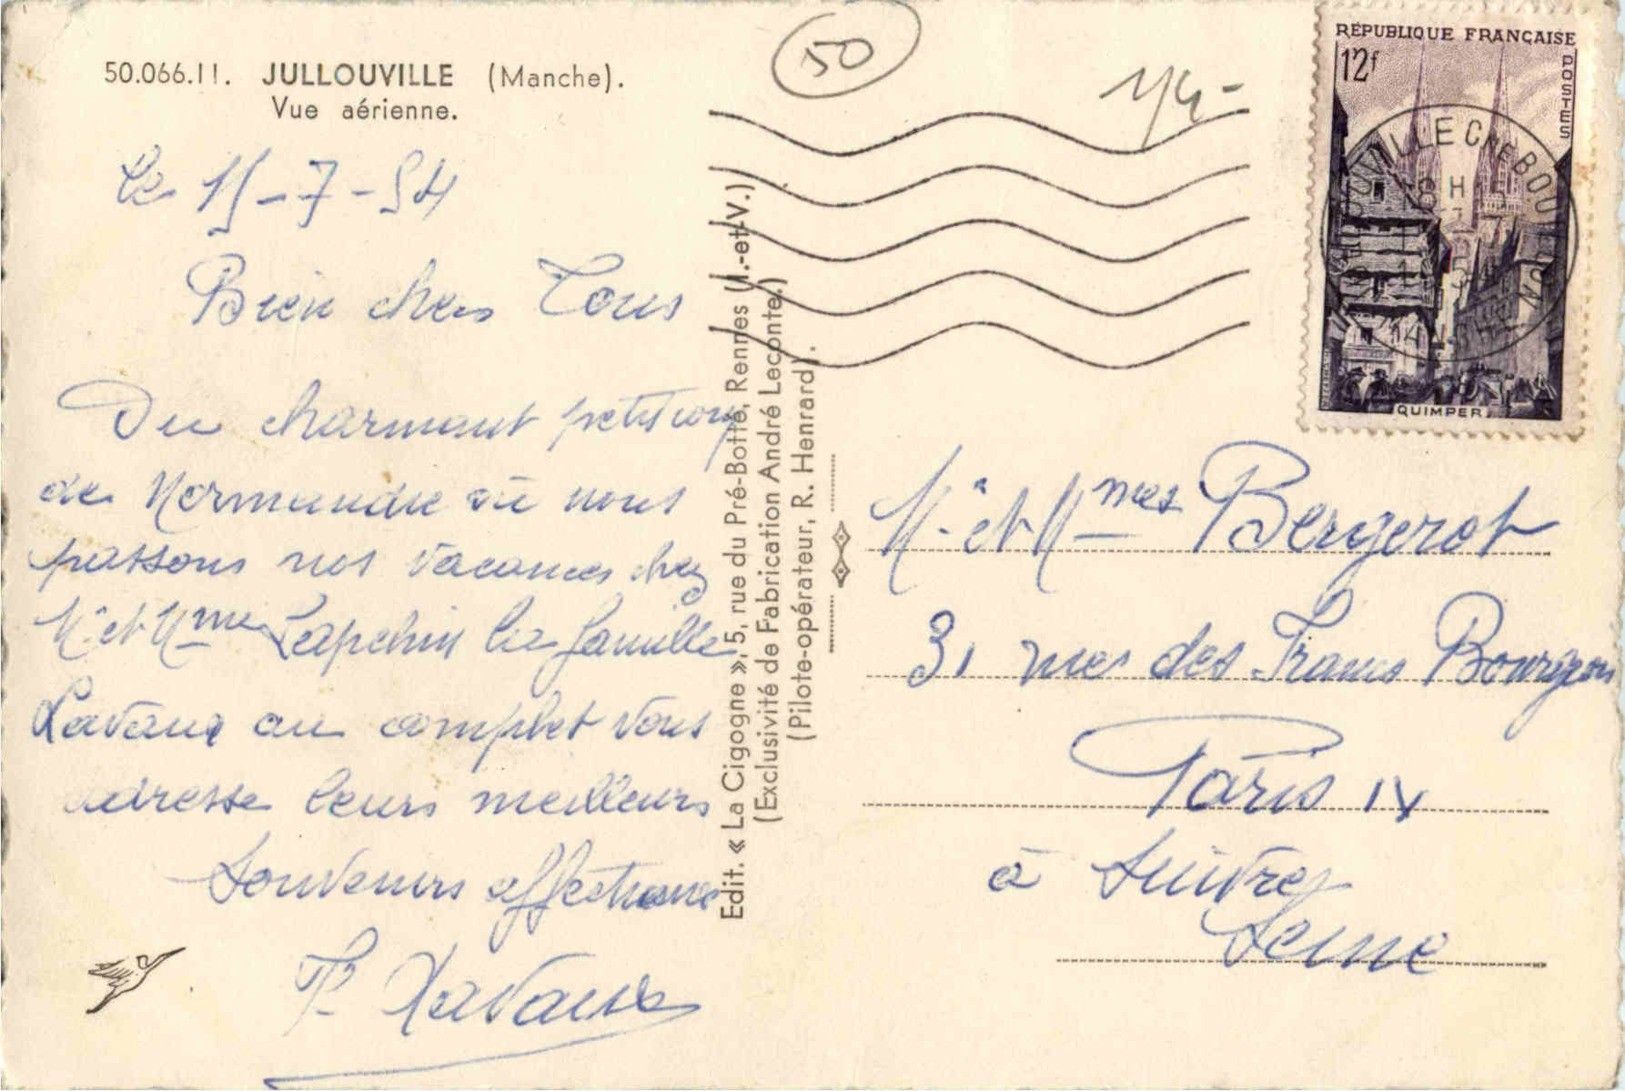 50.066.11. JULLOUVILLE (Manche).
Vue aérienne.
Le 15-7-54
Bien chers Tous
Du charmant petit coin
de Normandie où nous
passons nos vacances chez
Mr et Mme Lapchin la famille
Lavaux au complet vous
adresse leurs meilleurs
souvenirs affectueux
Lavaux
Edit. « La Cigogne », 5, rue du Pré-Botté, Rennes (I.-et-V.)
(Exclusivité de Fabrication André Leconte.)
(Pilote-opérateur, R. Henrard).
50
RÉPUBLIQUE FRANÇAISE
12f
POSTES
QUIMPER
JULLOUVILLE Cne BOUILLON
MANCHE
Mr et Mmes Bergerot
31 rue des Francs Bourgeois
Paris IV
à suivre
Seine